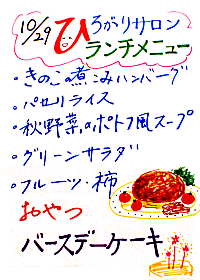 10/29 ひろがりサロン
ランチメニュー
・きのこの煮こみハンバーグ
・パセリライス
・秋野菜のポトフ風スープ
・グリーンサラダ
・フルーツ・柿
おやつ
バースデーケーキ